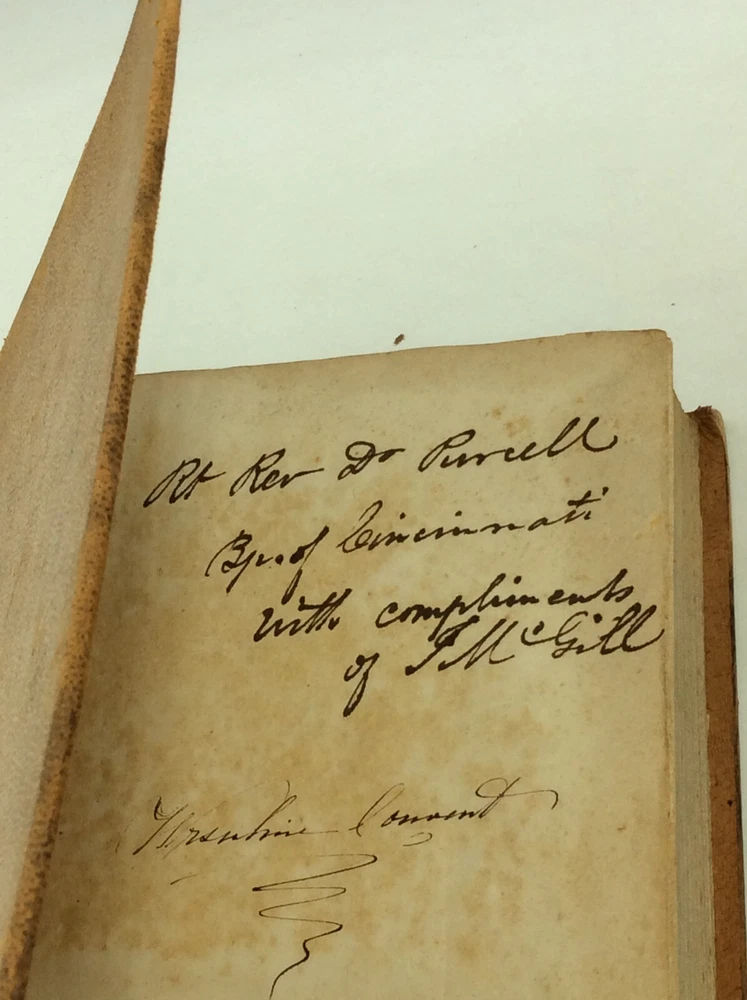 Rt Rev Dr Purcell
Bp. of Cincinnati
with compliments
of J McGill
Ursuline Convent